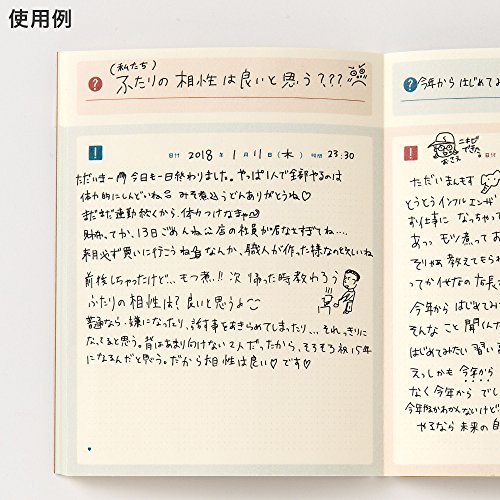 使用例
(私たち)
? ふたりの相性は良いと思う???
! 日付 2018 年 1 月 11 日 (木) 時間 23:30
ただいまー 今日も一日終わりました。やっぱ1人で全部やるのは
体力的にしんどいね みそ煮込うどんありがとうね♡
まだまだ運動続くから、体力つけなきゃ
財布、てか、13日ごめんね 公店の社員が居なすぎてね…
来月必ず買いに行こうね なんか、職人が作った様なのとかいいね
前検しちゃったけど… もつ煮!! 次帰った時教わろう
ふたりの相性は? 良いと思うよ
普通なら、嫌になったり、話す事をあきらめてしまったり… それっきりに
なってると思う。背はあまり向けない2人だったから、そろそろ祝15年
になるんだと思う。だからお相性は良い♡です♡
? 今年からはじめてみ
! 日付
ニキビ
できた。
おさえ
ただいまんもす
とうとうインフルエンザ
お仕事になっちゃって
あっ モツ煮ってお
そりゃあ教えてもら
ってかイせなの店長
今年からはじめてみ
そんなこと聞くんだ
はじめてみたい習い
えっしかも今年から
なく今年からでし
今年かわかんないけど
やるなら未来の自